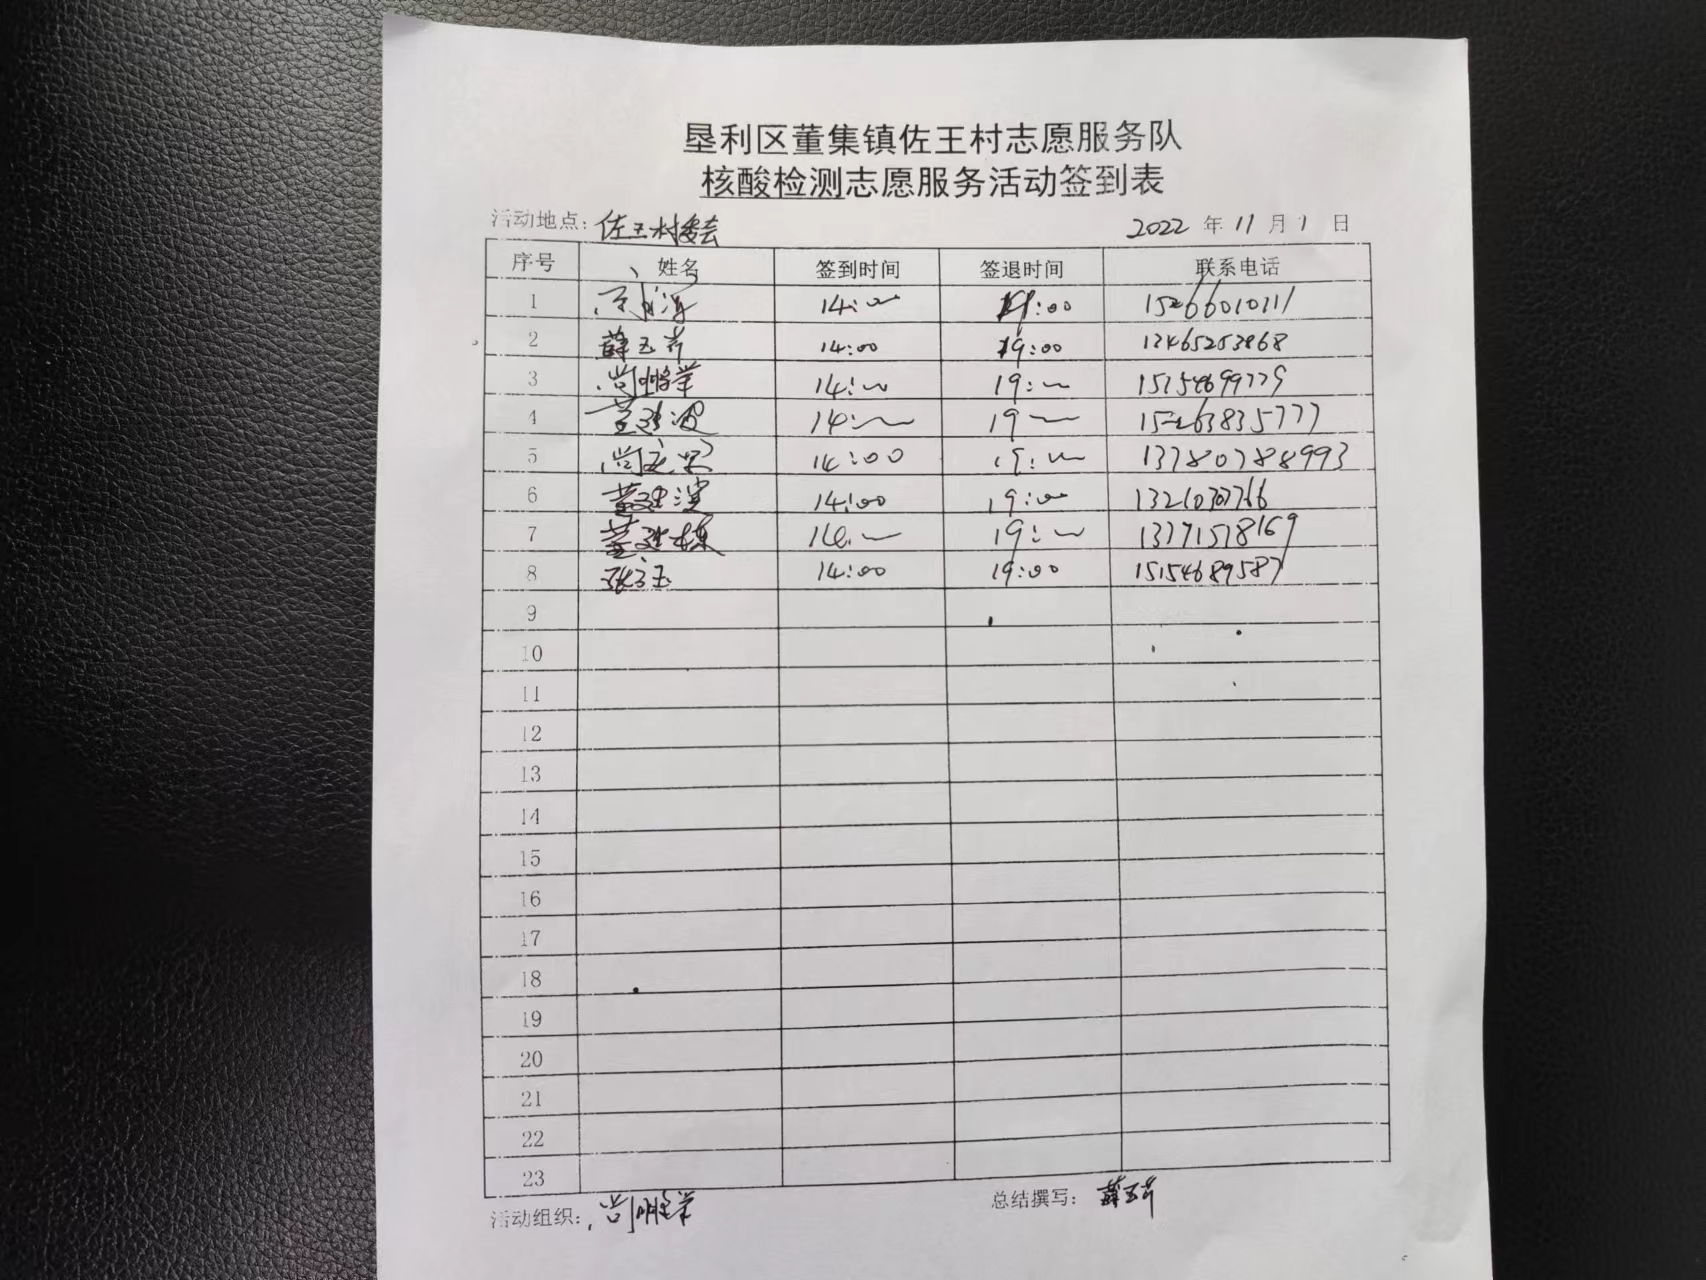 垦利区董集镇佐王村志愿服务队
核酸检测志愿服务活动签到表
活动地点: 佐王村委会 2022 年 11 月 1 日
序号 姓名 签到时间 签退时间 联系电话
1 14:00 19:00 15266010111
2 薛玉芹 14:00 19:00 13465253868
3 尚鹏举 14:00 19:00 15154699779
4 董建波 14:00 19:00 15263835777
5 尚 14:00 19:00 13780788993
6 董建滨 14:00 19:00
7 董建栋 14:00 19:00
8 张玉 14:00 19:00 15154689587
9
10
11
12
13
14
15
16
17
18
19
20
21
22
23
活动组织: 尚鹏举 总结撰写: 薛玉芹